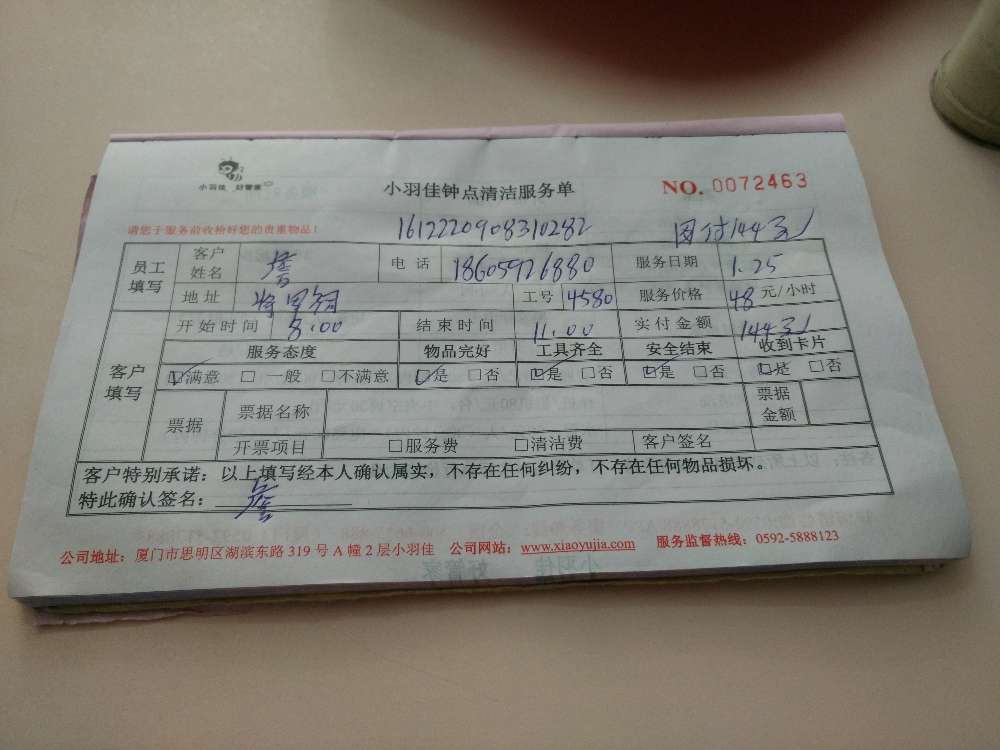 小羽佳 好管家
小羽佳钟点清洁服务单
NO. 0072463
请您于服务前收拾好您的贵重物品！
1612220908310282
144元
员工填写 客户姓名 詹 电话 18605926880 服务日期 1.25
地址 工号 4580 服务价格 48元/小时
客户填写 开始时间 8:00 结束时间 11:00 实付金额 144元
服务态度 物品完好 工具齐全 安全结束 收到卡片
☑满意 □一般 □不满意 ☑是 □否 ☑是 □否 ☑是 □否 ☑是 □否
票据 票据名称 票据金额
开票项目 □服务费 □清洁费 客户签名
客户特别承诺：以上填写经本人确认属实，不存在任何纠纷，不存在任何物品损坏。
特此确认签名： 詹
公司地址：厦门市思明区湖滨东路319号A幢2层小羽佳 公司网站：www.xiaoyujia.com 服务监督热线：0592-5888123